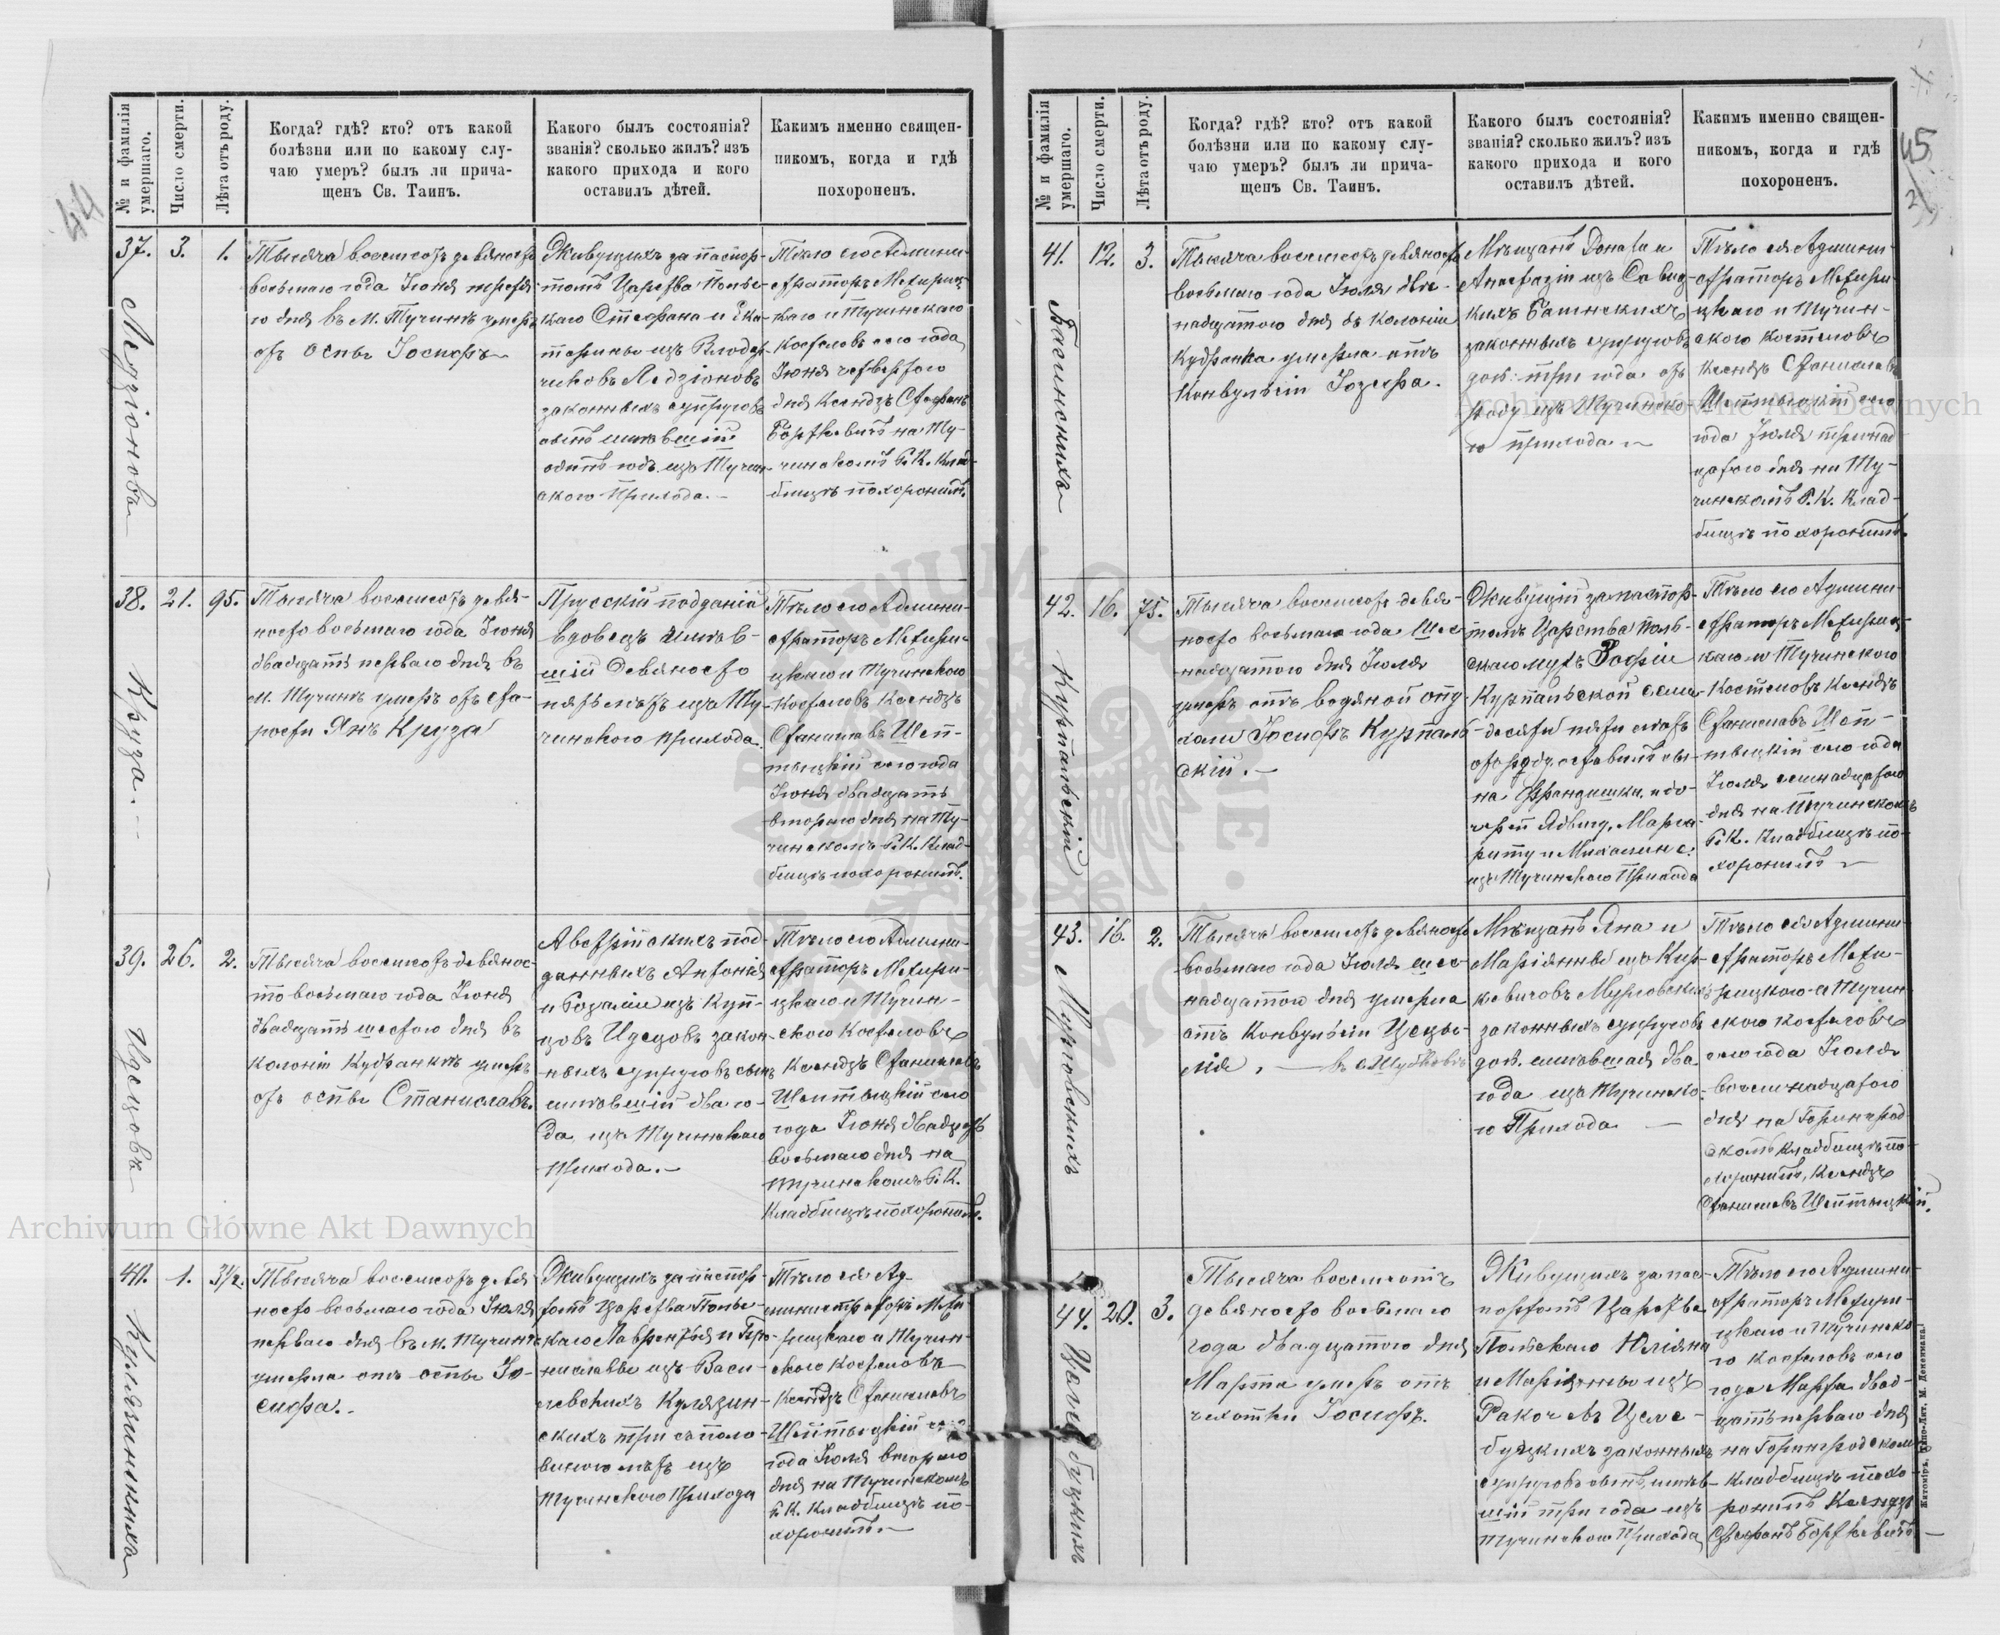 44
№ и фамилія умершаго.
Число смерти.
Лѣта отъ роду.
Когда? гдѣ? кто? отъ какой
болѣзни или по какому слу-
чаю умеръ? былъ ли прича-
щенъ Св. Таинъ.
Какого былъ состоянія?
званія? сколько жилъ? изъ
какого прихода и кого
оставилъ дѣтей.
Каким​ъ именно священ-
никомъ, когда и гдѣ
похороненъ.
37.
3.
1.
Тысяча восемсотъ девяносто
восьмаго года Іюня третья-
го дня въ м. Тучинѣ умеръ
отъ оспы Іосифъ
Живущихъ за паспор-
томъ Царства Поль-
скаго Стефана и Ека-
терины изъ
законныхъ супруговъ
сынъ имѣвшій
одинъ годъ изъ Тучин-
скаго Прихода.
Тѣло его Админи-
страторъ Межириц-
каго и Тучинскаго
костеловъ сего года
Іюня четвертого
дня Ксендзъ Стефанъ
на Ту-
чинскомъ Р. К. клад-
бищѣ похоронилъ.
38.
21.
95.
Круза.
Тысяча восемсотъ девя-
носто восьмаго года Іюня
двадцать перваго дня въ
м. Тучинѣ умеръ отъ ста-
рости Янъ Круза
Прусскій подданій
вдовецъ имѣв-
шій девяносто
пять лѣтъ изъ Ту-
чинского прихода.
Тѣло его Админи-
страторъ Межири-
цкаго и Тучинского
Костеловъ Ксендзъ
Станиславъ Шеп-
тыцкій сего года
Іюня двадцать
втораго дня на Ту-
чинскомъ Р. К. Клад-
бищѣ похоронилъ.
39.
26.
2.
Тысяча восемсотъ девянос-
то восьмаго года Іюня
двадцать шестого дня въ
колоніи Кудранкѣ умеръ
отъ оспы Станиславъ.
Австрійскихъ под-
данныхъ Антонія
и Розаліи изъ
закон-
ныхъ супруговъ сынъ
имѣвшій два го-
да, изъ Тучинскаго
прихода.
Тѣло его Админи-
страторъ Межири-
цкаго и Тучин-
ского Костеловъ
Ксендзъ Станиславъ
Шептыцкій сего
года Іюня двадцать
восьмаго дня на
Тучинскомъ Р. К.
Кладбищѣ похоронилъ.
40.
1.
3½.
Тысяча восемсотъ девя
носто восьмаго года Іюля
перваго дня въ м. Тучинѣ
умерла отъ оспы Іо-
сифа.
Живущихъ за паспор-
томъ Царства Поль-
скаго Лаврентія и Бро-
ниславы изъ Васи-
левскихъ Кулязин-
скихъ три съ поло-
виною лѣтъ изъ
Тучинского Прихода
Тѣло ея Ад-
министраторъ Межи
рицкаго и Тучин-
ского Костеловъ
Ксендзъ Станиславъ
Шептыцкій сего
года Іюля второго
дня на Тучинскомъ
Р. К. Кладбищѣ по-
хоронилъ
45
№ и фамилія умершаго.
Число смерти.
Лѣта отъ роду.
Когда? гдѣ? кто? отъ какой
болѣзни или по какому слу-
чаю умеръ? былъ ли прича-
щенъ Св. Таинъ.
Какого былъ состоянія?
званія? сколько жилъ? изъ
какого прихода и кого
оставилъ дѣтей.
Какимъ именно священ-
никомъ, когда и гдѣ
похороненъ.
41.
12.
3.
Тысяча восемсотъ девяносто
восьмаго года Іюля две-
надцатого дня въ колоніи
Кудранка умерла отъ
Конвульсіи Іозефа.
Мѣщанъ Доната и
Анастазіи изъ
законныхъ супруговъ
доч. три года отъ
роду изъ Тучинско-
го прихода
Тѣло ея Админи-
страторъ Межири-
цкаго и Тучин-
ского Костеловъ
Ксендзъ Станиславъ
Шептыцкій сего
года Іюля тринад
цатого дня на Ту-
чинскомъ Р. К. Клад-
бищѣ похоронилъ.
42.
16.
75.
Курпальскій
Тысяча восемсотъ девя-
носто восьмаго года Шес-
надцатого дня Іюля
умеръ отъ водяной опу
холи Іосифъ Курпаль
скій.
Живущій за паспор-
томъ Царства Поль-
скаго мужъ Зофіи
Курпальской семи-
десяти пяти лѣтъ
отъ роду, оставилъ сы-
на Францишка, и до-
черей Ядвигу, Марга-
риту и
изъ Тучинского Прихода
Тѣло его Админи-
страторъ Межириц-
каго и Тучинского
Костеловъ Ксендзъ
Станиславъ Шеп-
тыцкій сего года
Іюля семнадцатого
дня на Тучинскомъ
Р. К. Кладбищѣ по-
хоронилъ
43.
16.
2.
Тысяча восемсотъ девяносто
восьмаго года Іюля шес-
надцатого дня умерла
отъ Конвульсіи Цецы-
лія,
Мѣщанъ Яна и
Маріянны изъ
законныхъ супруговъ
доч. имѣвшая два
года изъ Тучинско-
го Прихода
Тѣло ея Админи-
страторъ Межи-
рицкого и Тучин-
ского Костеловъ
сего года Іюля
восемнадцатого
дня на Горынград
скомъ Кладбищѣ по-
хоронилъ, Ксендзъ
Станиславъ Шептыцкій.
44.
20.
3.
Тысяча восемсотъ
девяносто восьмаго
года двадцатого дня
Марта умеръ отъ
чахотки Іосифъ.
Живущихъ за пас-
портомъ Царства
Польскаго Юліяна
и Маріянны изъ
законныхъ
супруговъ сынъ, имѣв-
шій три года изъ
Тучинского Прихода
Тѣло его Админи-
страторъ Межири-
цкаго и Тучинско
го Костеловъ сего
года Марта двад-
цать перваго дня
на Горынградскомъ
Кладбищѣ похо-
ронилъ Ксендзъ
Стефанъ
Archiwum Główne Akt Dawnych
Archiwum Główne Akt Dawnych